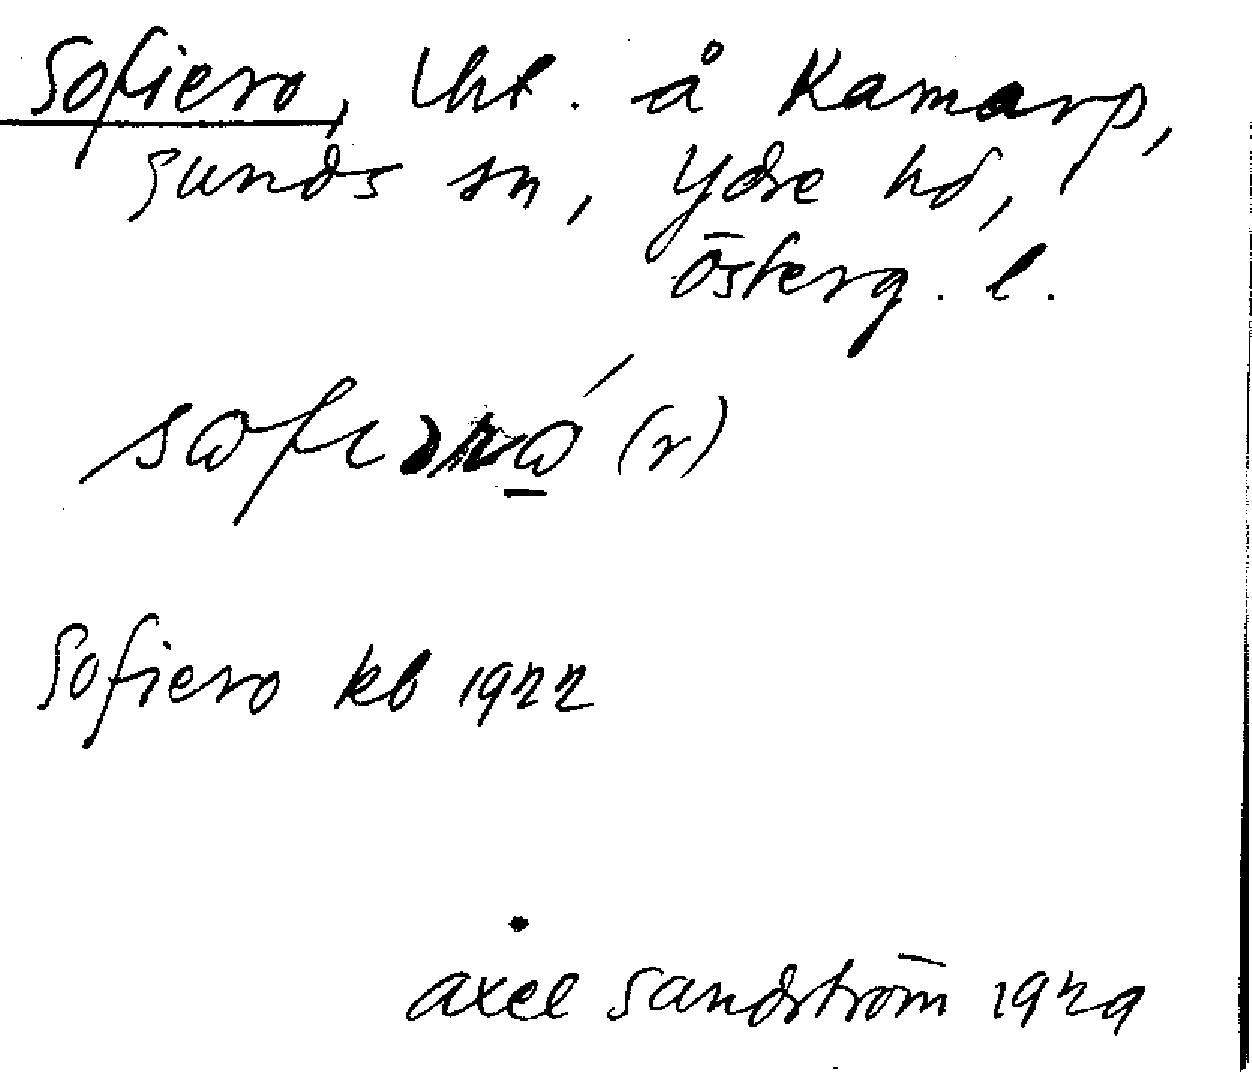 Sofiero, lht. å Kamarp,
Sunds sn, Ydre hd,
Österg. l.
(r)
Sofiero kb 1922
Axel Sandström 1929